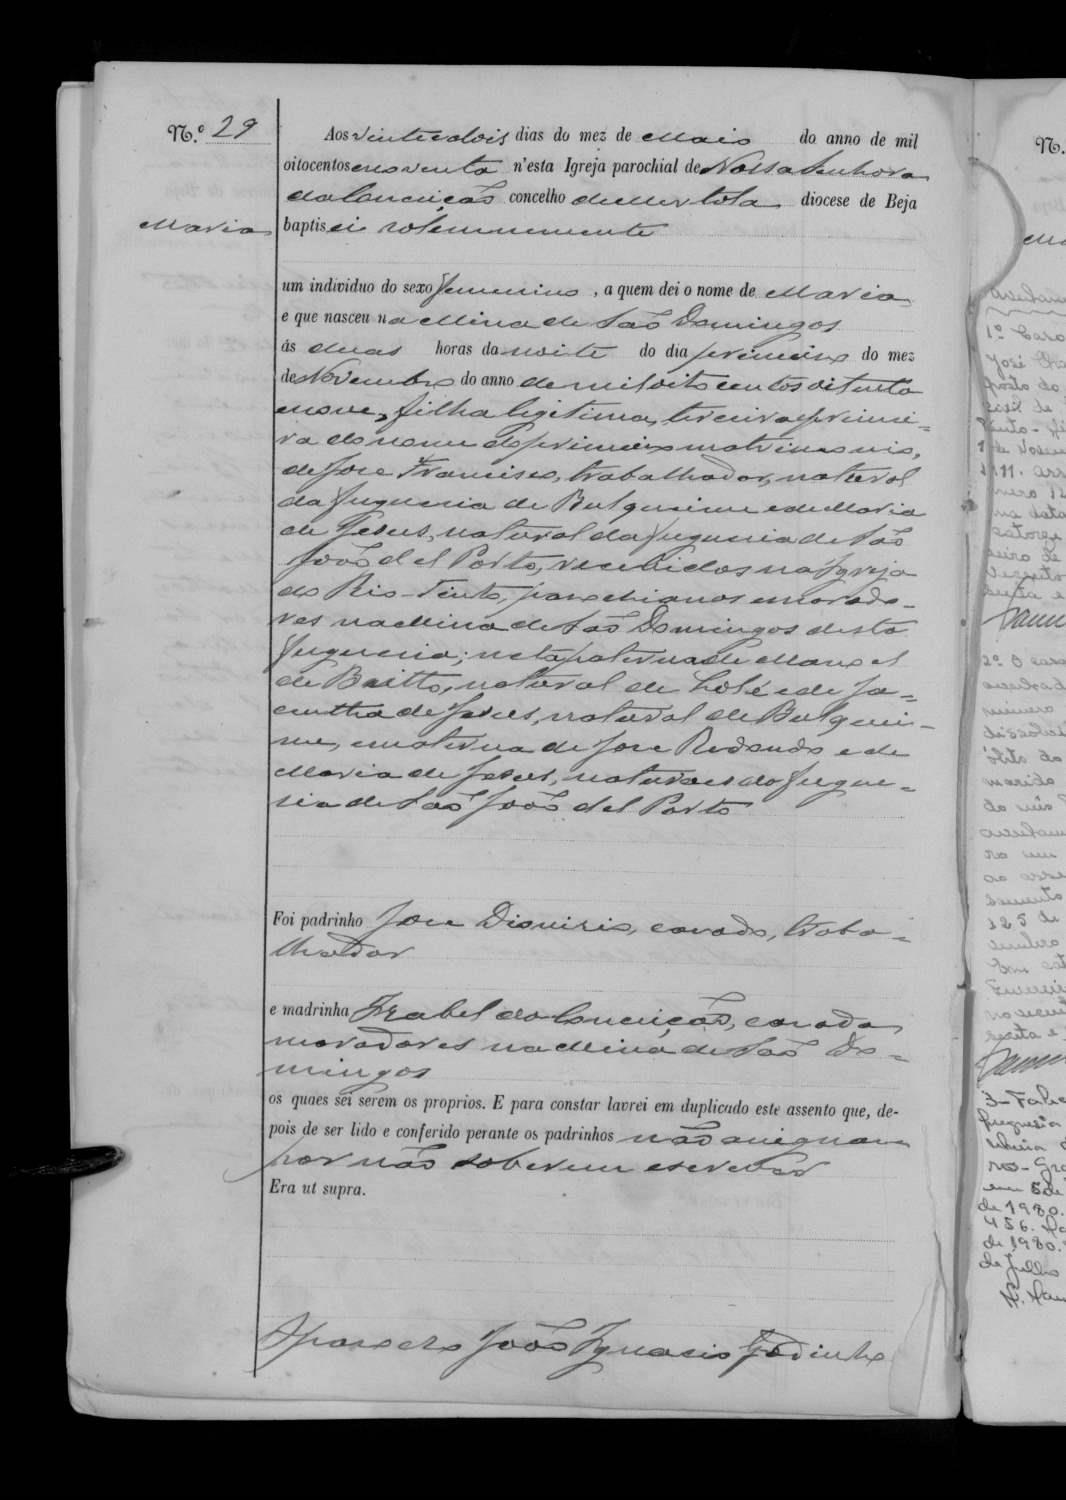 N.º 29
Aos vinte e dois dias do mez de Maio do anno de mil
oitocentos e noventa n'esta Igreja parochial de Nossa Senhora
da Conceição concelho de Mertola diocese de Beja
Maria
baptisei solemnemente
um individuo do sexo femenino, a quem dei o nome de Maria
e que nasceu na Mina de São Domingos
ás duas horas da noite do dia primeiro do mez
de Novembro do anno de mil oito centos oitenta
e nove, filha legitima, terceira e primei-
ra do nome do primeiro matrimonio,
de Jose Francisco, trabalhador, natural
da freguesia de Bulqueime e de Maria
de Jesus, natural da freguesia de São
João del Porto, recebidos na Igreja
do Rio-Tinto, parochianos e morado-
res na Mina de São Domingos desta
freguesia; neta paterna de Manoel
de Britto, natural de Lolé e de Ja-
cintha de Jesus, natural de Bulquei-
me, e materna de Jose Redondo e de
Maria de Jesus, naturaes da fregue-
sia de São João del Porto
Foi padrinho Jose Dionisio, casado, traba-
lhador
e madrinha Izabel da Conceição, casada
moradores na Mina de São Do-
mingos
os quaes sei serem os proprios. E para constar lavrei em duplicado este assento que, de-
pois de ser lido e conferido perante os padrinhos não assignam
por não saberem escrever
Era ut supra.
O parocho João Ignacio Godinho
N.
1º Caso
posto do
civil de
1911.
na data
2º O casa
numero
óbito do
marido
do mês
ro um
125 de
freguesia
em 5 de
de 1980.
456.
de 1980.
de Julho